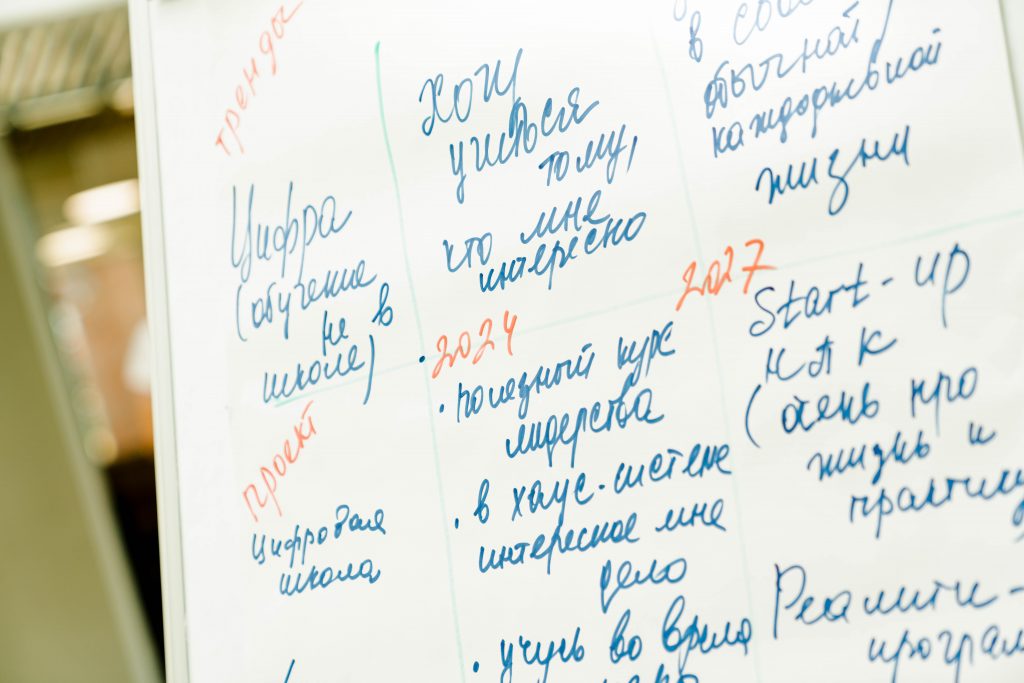 тренды
Цифра
(обучение
не в
школе)
Хочу
учиться
тому,
что мне
интересно
в своей
обычной
каждодневной
жизни
проект
Цифровая
школа
• 2024
• полезный курс
лидерства
• в хаус-системе
интересное мне
дело
• учусь во время
2027
Start-up
НЛК
(очень про
жизнь и
практику
Реалити-
програм